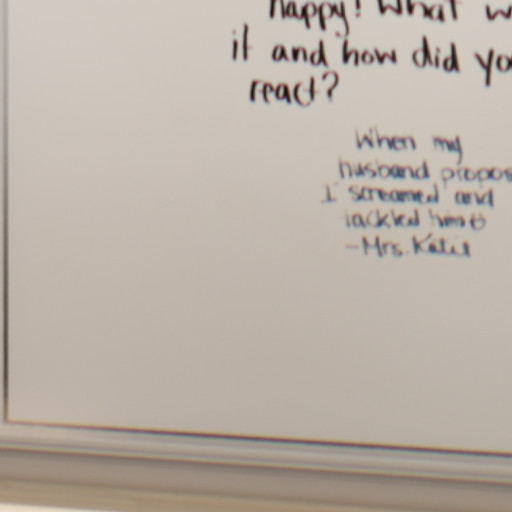 happy! What w
it and how did yo
react?
When my
husband propos
I screamed and
tackled him
-Mrs. Katie